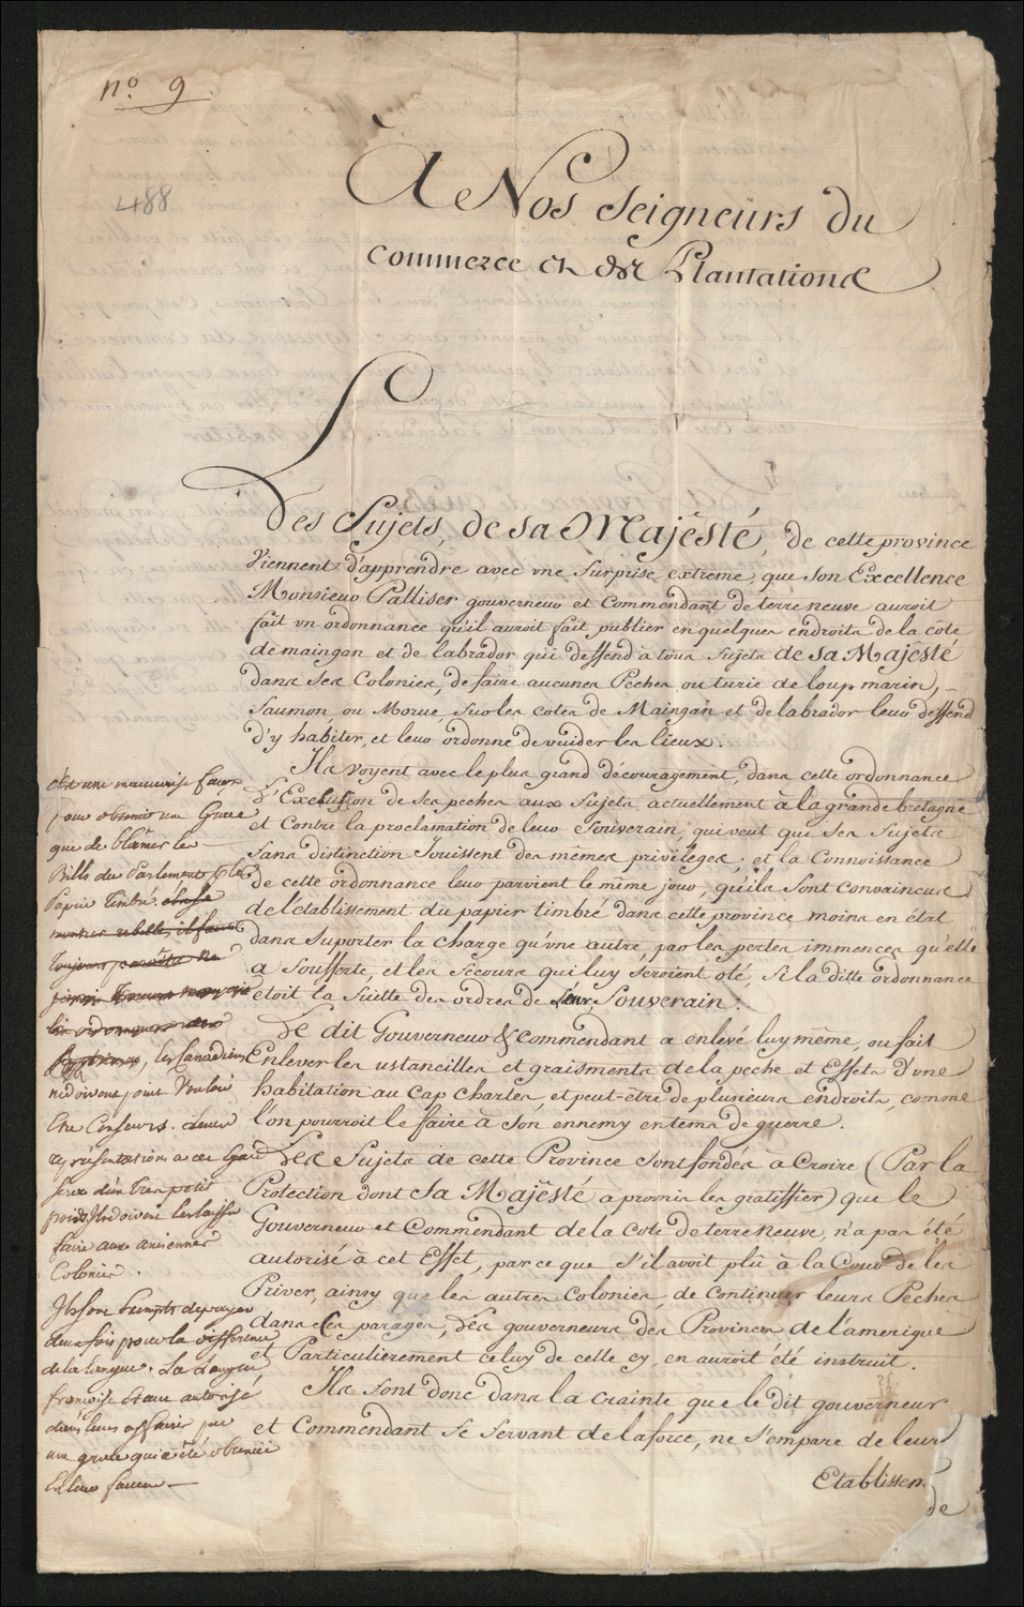 n.º 9
488
A Nos Seigneurs du
Commerce et des Plantations
Les Sujets, de sa Majesté, de cette province
Viennent d'apprendre avec vne surprise extreme, que son Excellence
Monsieur Palliser gouverneur et Commendant de terre neuve auroit
fait vn ordonnance qu'il auroit fait publier en quelques endroits de la côte
de maingan et de labrador qui deffend à tous sujets de sa Majesté
dans ses Colonies, de faire aucunes Peches, ou turie de loup marin,
Saumon, ou Morue, sur les cotes de Maingan et de labrador leur deffend
d'y habiter, et leur ordonne de vuider les lieux.
Ils voyent avec le plus grand découragement, dans cette ordonnance
L'Exclusion de ses pêches aux Sujets actuellement à la grande bretagne
et Contre la proclamation de leur Souverain, qui veut que ses Sujets
sans distinction Jouissent des mêmes privileges; et la Connoissance
de cette ordonnance leur parvient le même jour, qu'ils sont convaincus
de l'établissement du papier timbré dans cette province moins en état
dans suporter la charge qu'vne autre, par les pertes immences qu'elle
a soufferte, et les sécours qui luy seroient oté, si la ditte ordonnance
etoit la suitte des ordres de leur Souverain.
Le dit Gouverneur & commendant a enlevé luy même, ou fait
Enlever les ustancilles et graisments de la peche et Effets d'vne
habitation au Cap Charles, et peut-être de plusieurs endroits, comme
l'on pourroit le faire à son ennemy en tems de guerre.
Les Sujets de cette Province sont fondés à Croire (Par la
Protection dont Sa Majesté a promis les gratiffier) que le
Gouverneur et Commendant de la Cote de terre Neuve, n'a pas été
autorisé à cet Effet, parce que s'il avoit plû à la Cour de les
Priver, ainsy que les autres Colonies, de continuer leurs Peches
dans ces parages, Les gouverneurs des Provinces de l'amerique
et Particulierement celuy de celle cy, en auroit été instruit.
Ils sont donc dans la crainte que le dit gouverneur
et Commendant se servant de la force, ne s'empare de leur
Etablissem
de
c'est une mauvaise facon
pour obtenir une Grace
que de blâmer les
Bills du Parlement, et le
Papier Timbré.
toujours
les Canadiens
ne doivent point Vouloir
Etre Censeurs. Leurs
representations a cet Egard
sera d'un tres petit
poids Ils doivent les laisser
faire aux anciennes
Colonies.
Ils sont Exempts de payer
deux fois pour la difference
de la langue. La Langue
françoise étant autorisé
dans leurs affaires par
une grace qui a été obtenüe
En leur faveur